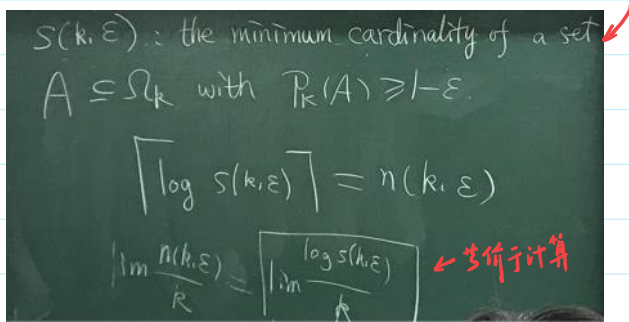 S(k, ε) : the minimum cardinality of a set
A ⊆ Ωk with Pk(A) ≥ 1-ε.
⌈log s(k, ε)⌉ = n(k, ε)
lim n(k, ε)/k = lim log s(k, ε)/k
← 等价于计算